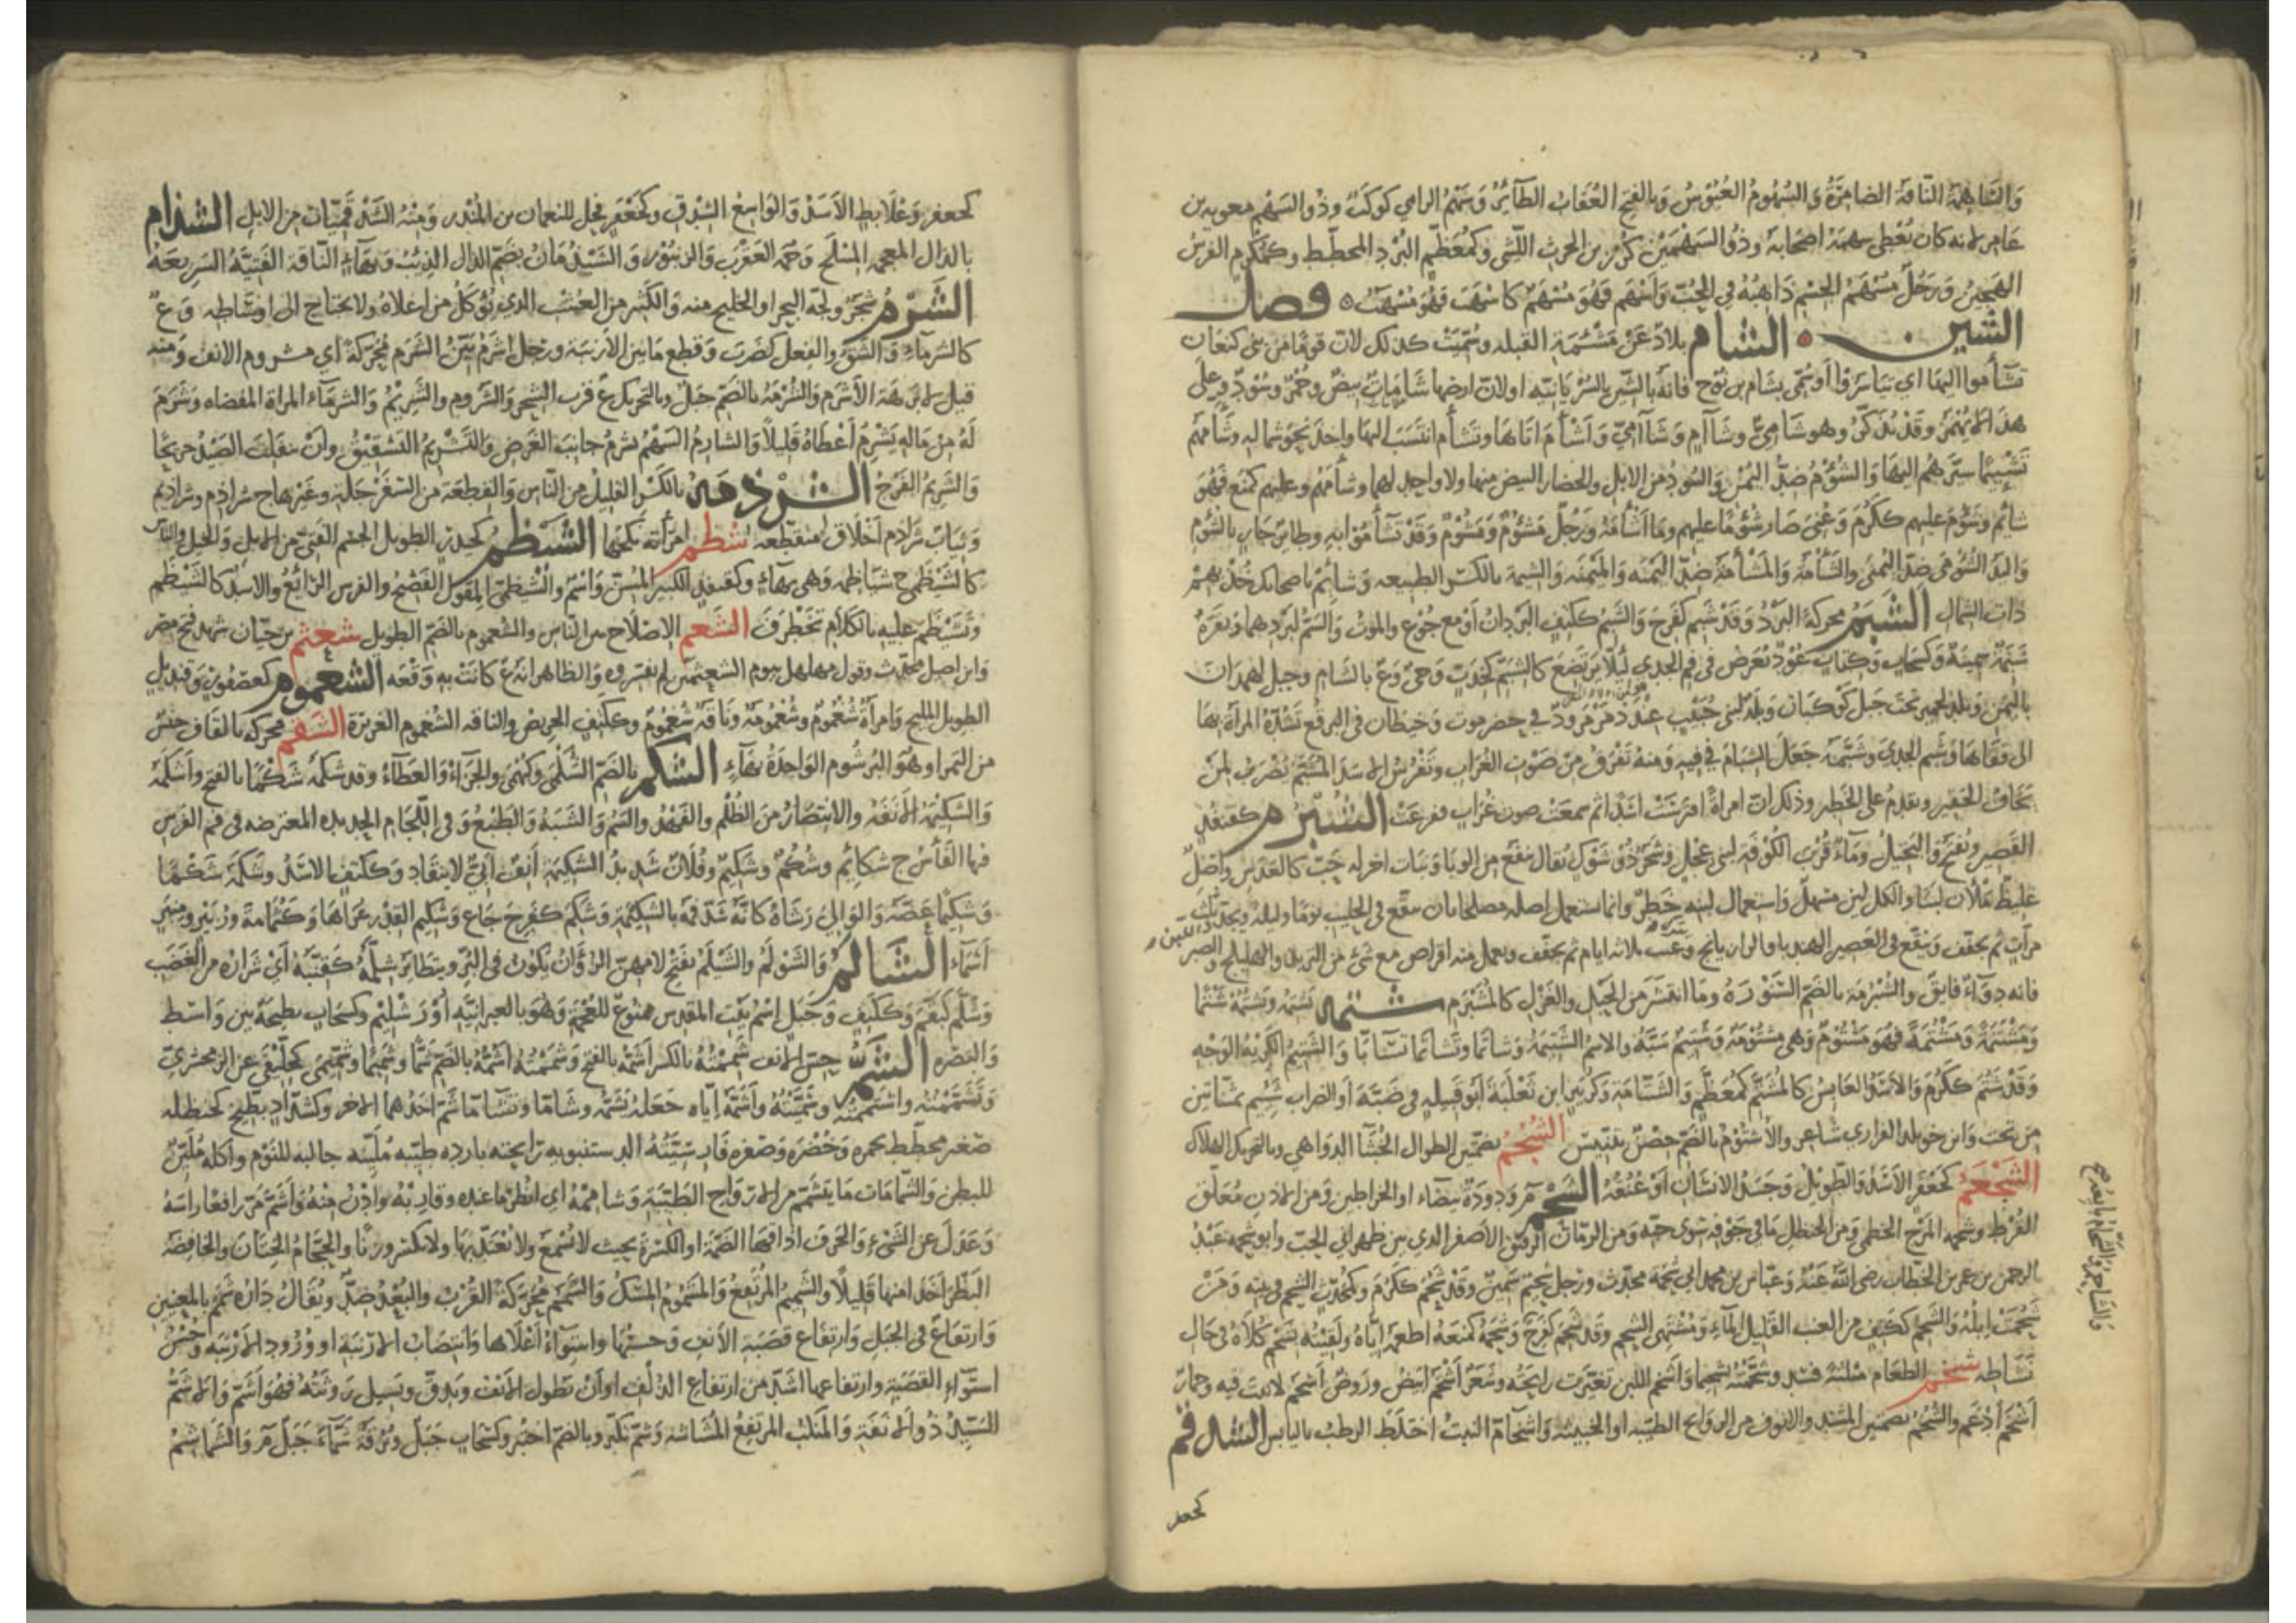 والسَّاهِمَة النّاقَة الضامِرَةُ والسُهُومُ العُبُوسُ وبالفَتحِ العُقابُ الطّائِرُ وَسَهْمُ الرامي كوكَبٌ وذُو السَهْمِ معوية بن
عامر لانه كان يُعْطى سهمَهُ اصحَابَهُ وذُو السَهْمَيْن كُرْز بن الحرث اللّيثى وكمُعَظّمٍ البُرْد المخطّط وكمُكْرَمٍ الفرسُ
الهَجينُ وَرَجُلٌ مُسْهَمُ الجِسْمِ ذَاهِبُهُ فى الحُبّ وَأَسْهَمَ فَهُوَ مُسْهَمٌ كأسْهَبَ فَهُوَ مُسْهَبٌ ه فصل
الشين الشام بلادٌ عَنْ مَشْئَمَةِ القبله وسُمّيَتْ كذلك لانّ قومًا من بنى كنعَان
تشأموا اليهَا اى تيَاسَرُوا أو سُمّى بشام بن نُوْح فانّهُ بالشين بالسُرْيَانيّه اولانّ ارضها شَامَاتٌ بيضٌ وحُمْرٌ وسُوْدٌ وعلى
هذا لا تُهْمَزُ وقَدْ تُذَكّرُ وهو شَامِىٌّ وشَآمٍ وَشَآمِىّ وَأشْأَمَ اتَاهَا وتَشَأم انتَسَبَ اليهَا واخذَ نَحوَ شماله وشَأمَهُم
تَشْئِيمًا سيّرَهُم اليهَا وَالشُؤْمُ ضدُّ اليُمْنِ والسُودُ من الابل والحضار البيض منها ولا واحد لهما وشأمَهُم وعليهم كمنع فَهُوَ
شائمٌ وشَؤُمَ عليهم ككَرُمَ وَعُنىَ صَار شُؤْمًا عليهم وما أشْأمَهُ ورَجُلٌ مَشْؤُمٌ وَمَشُوْمٌ وَقَدْ تَشَأمُوا به وطائر جارٍ بالشُؤم
واليَدُ الشُؤْمَى ضدّ اليُمْنَى والشَأمَةُ وَالمَشْأمَةُ ضدّ اليَمْنه وَالمَيْمَنَه وَالشيمة بالكَسْر الطبيعه وشائِمْ باصحابك خُذْ بهِمْ
ذاتَ الشمال الشَبَمُ محركة البَرْدُ وَقَدْ شَبِمَ كفَرِحَ وَالشَبِمُ ككتِفٍ البَردَانُ أَوْ مع جُوْعٍ والموتُ وَالسَّمُّ لبَرْدهما وَبَقَرَةٌ
شَبِمَةٌ سمينةٌ وكسَحَابٍ وَكتابٍ عُوْدٌ يُعْرَضُ فى فم الجَدى لئلّا يرتضعَ كالشَبَم وَحَىٌّ وَعٌ بالشَامِ وجبل لهَمْدانَ
باليَمَنِ وبلدٌ لحميرَ تحتَ جبل كَوْكبَان وبلدٌ لبنى حُبَيْبٍ عند ذَمَرْمَرَ وَدٌّ فى حضرموت وخيطانِ فى البرقُع تَشُدُّهُ المرأة بهَا
الى قفَاهَا وَشَبَم الجَدىَ وَشَبَّمَهُ جَعَلَ الشبَامَ فى فيهِ وَمنهُ تَفْرَقُ مِنْ صَوْتِ الغُرَابِ وتَفْرِسُ الاسَدَ المُشَبَّمَ يُضرَبُ لمَنْ
يخافُ الحَقيرَ ويقدِمُ على الخَطير وذلك انّ امرأةً افتَرَسَتْ اسَدًا ثم سمعَتْ صوت غُراب ففزِعَتْ الشُبْرُم كقنفُذٍ
القصير وتُفتَحُ وَالبَخيلُ وماءٌ قُرْبَ الكوفَه لبنى عِجْل وشجَرٌ ذُوْ شَوْك يُقال ينفَعُ من الوبَا ونبات آخر له حَبّ كالعَدَس وأصْلٌ
غليظٌ مَلْآن لبَنًا والكل لَبَنٌ مُسْهِلٌ وَاستعمال لبنه خَطِرٌ وانما يستعمل اصله مصلحًا بان ينقَعَ فى الحليب يومًا وليلة ويجدّد اللبن
مرّاتٍ ثم يجفّف وَيُنقَع فى العَصير الهندبا والرازيانج ثلاثه ايام ثم يجفّف ويعمل منه اقراص مع شئ من التربد والهليلج والصبر
فانه دوَآءٌ فايقٌ والشُبْرُمَة بالضم السّنَّوْرَةُ وما انتشَرَ من الحَبْل والغزل كالمُشَبْرَم شتمه يَشْتِمُهُ ويَشْتُمُهُ شَتْمًا
وَمَشْتَمَةً ومَشْتُمَةً فهُوَ مَشْتُوْمٌ وَهى مشتومةٌ وَشَتيمٌ سَبَّهُ والاسم الشَتيمَة وَشاتما وتَشاتَمَا تَسَابّا والشَتيمُ الكَريْهُ الوَجْهِ
وَقَدْ شَتُمَ ككَرُمَ وَالاسَدُ العابِسُ كالمُشَتَّم كمُعَظَّمٍ وَالشَتّامَةِ وَكزُبَيرٍ ابن ثَعْلَبَةَ أبُو قبيلهٍ فى ضَبَّةَ أو الصَواب شُيَيْم بمثنّاتين
من تحت وابن خويلد الفزارى شاعر والأشتُومُ بالضمّ حصْنٌ بتِنّيسَ الشُجُمُ بضمّتين الطوال الخُبَثَآ الدوَاهى وبالتحريك الهلاك
الشَجْعَمُ كجَعْفَرٍ الأسَدُ والطّويلُ وَجَسَدُ الانسَان أَوْ عُنُقُهُ الشَحْم مر وَدودَةٌ بيضاء او الخراطين وَمن الاذن مُعَلَّق
القُرْط وشحمة المَرْج الخطمى وَمن الحنظل مَا فى جَوْفه سوى حبّه ومن الرمّان الرقيق الأصفر الذى بين ظهرانى الحَبّ وابو شحمة عَبْدُ
الرحمن بن عمر بن الخطاب رضى اللّهُ عَنْهُ وعبّاس بن محمد ابى شَحْمَة محدّث ورجل شحيمٌ سَمينٌ وَقَدْ شَحُمَ ككَرُمَ وكمُحَدّثٍ الشحيم فى بيته ومَنْ
شَحُمَتْ ابِلُهُ وَالشحِم ككَتِفٍ من العنب القليل المَاءِ وَمُشْتَهِى الشحم وقد شَحِمَ كفَرِحَ وشَحَمَهُ كمنعَه اطعمَهُ ايَّاهُ ولَقيتُه بشحم كُلَاهُ فى حال
نَشَاطه شخم الطعام مثلثة فسَد وشخّمتُه تشخيمًا وَأشخم اللبن تغيّرَت رايحَتُه وَشعَرٌ أشْخَمُ ابيَضُ ورَوضٌ أشخم لا نبتَ فيه وحمار
أشخم أدغَم والشُخُمُ بضمّتين المُسَدّدوا الانوف من الروايح الطيّبه او الخبيثه وَاشخَآمّ النبتُ اختَلَطَ الرطبُ باليابس الشدقم
كجعفر
كجعفر وَعُلَابِطٍ الأسَدُ وَالوَاسِعُ الشِدْقِ وكجَعْفَرٍ فحل للنعمان بن المنذر وَمِنْهُ الشَدْقَميّات من الابل الشذام
بالذال المعجمه المِلْحُ وحُمَة العَقْرب والزنبُوْر وَالشَيْذُمَانُ بضَمّ الذال الذيْبُ وَبهَآءٍ النّاقَة الفَتيَّةُ السَريعَةُ
الشَرْمُ شجَرٌ ولجّة البحر او الخليج منه وَالكثير من العُشبِ الذى يُؤكَلُ من اعلاهُ ولا يحتاج الى اوسَاطِه وَعٌ
كالشرمَآءِ وَالشق والفعل كضَرَبَ وَقَطعُ مَا بين الأرنبَة ورَجل أشْرَمُ بَيّنُ الشَرَم مُحَرّكَةً اى مشروم الانف ومنه
قيل لأبرَهَة الأَشرَمُ وَالشُرْمَةُ بالضّم جَبَلٌ وبالتحريك عٌ قرب الشِحْر وَالشَرُوم والشَريْمُ وَالشرمَآء المرأة المفضاه وشَرَمَ
لَهُ من مَالهِ يَشْرِمُ أعْطَاهُ قَليلًا وَالشارمُ السَهْمُ يشرِمُ جانبَ الغَرَض وَالتشْريمُ التَشْقيقُ وأنْ ينفَلِتَ الصَيْدُ جريحًا
وَالشريمُ الفَرْجُ الشرذمة بالكسر القليلُ من النّاس وَالقِطعَة من السفَرْجلة وغيرهاج شراذم وشراذيم
وثيَابٌ شَراذم أخلَاقٌ متقطّعه شظم امرأته نكحها الشَيْظَمُ كحيدر الطويل الجسيم الفَتىّ من الابل والخيل والنّاسِ
كالشَيْظَمِىّ شيَاظمه وَهى بهآءٍ وَكقنفذ الكبير المُسنّ وَاسْمٌ والشَيظَمىّ المِقْوَل الفَصْيحُ والفرس الرّائعُ والاسَدُ كالشَيْظم
وتَشَيْظَمَ عليه بالكلام تَخَطْرَفَ الشَعْمُ الإصْلَاح بين النّاس والشُعْمُوم بالضَّم الطويل شعثم بن حيّان شهد فتح مصر
وابن اصيل محدّث وقول مهلهل بيوم الشعثمين لم يفسّروه وَالظاهر انّه عٌ كانَتْ به وَقْعَه الشغموم كعصفُوْر وقنديل
الطويل المليح وَامرأة شُغْمُوْمٌ وشُغْمُومَةٌ ونَاقَةٌ شُغْمُومٌ وككتف الحريص والناقه الشُغموم الغزيرَة الشقم محركة بالقَاف جنسٌ
من التمر او هُوَ البُرْشُوم الوَاحِدَةُ بهَآءٍ الشكم بالضّمّ الشُكْمَى وَكبُهمَى والجَزَاءُ وَالعَطَآءُ وقد شكَمَهُ شَكْمًا بالفتح وأشكَمَهُ
وَالشَكيمَة الأنَفَة والانتصَارُ من الظُلْم والعَهْدُ والسَمُّ وَالشَبَهُ وَالطَبْعُ وَفى اللّجَام الحديده المعترضه فى فم الفَرَسِ
فيها الفَأسُ ج شكَائم وشُكُمٌ وشَكيمٌ وفُلَانٌ شَديدُ الشَكيمَة أنِفٌ أبىٌّ لا ينقَاد وَككتِفٍ الاسَدُ وشَكَمَهُ شَكْمًا
وشَكيمًا عَضَّهُ وَالوَالى رَشَاهُ كأنّهُ سَدَّ فَمَهُ بالشكيمَة وَشَكِم كفَرِحَ جَاعَ وشَكيم القدْر عُراهَا وَكثُمَامَة وزُبَيْر ومِنْبَرٍ
أسْمَآء الشَالم وَالشَوْلَمُ والشَيْلَمُ بفتح لامهنّ الزؤَان يَكوْن فى البُرّ ويتطَايَرُ شِلَّمُهُ كقِنَّبَةٍ أىْ شَرَارُهُ من الغَضَب
وَشَلَّم كبَقَّم وَككتِفٍ وَجَبَلٍ اسْمُ بَيت المقدس ممنوع للعُجْمَة وَهُوَ بالعبرانيّه أوْرَ شَلِيْم وكسَحَاب بطيحةٌ بين وَاسطَ
والبَصره الشَمُّ حسّ الانف شَمِمْتُهُ بالكسر أشَمّه بالفتح وَشَمَمْتُه أشُمُّهُ بالضَمّ شَمًّا وشَميمًا وشمّيمَى كخِلّيفَى عن الزمخشرىّ
وَتَشَمَّمْتُه واشتَمَمْتُه وشَمَّمْتُهُ وأشَمَّهُ ايّاه جَعَلهُ يشَمّه وشَامّا وتَشَامّا شَمَّ أحَدُهما الآخر وكشدّاد بطيخ كحنظله
صَغير مخطّط بحمره وخُضْرَه وَصُفره فَارسيّتُهُ الدستنبويه رَايحتُه بارده طيّبه مُليِّنه جالبه للنَوْم وأكله مُلَيِّنٌ
للبطن والشّمَامَات مَا يتشمّم من الارواح الطَيّبَة وَشَامِمْهُ اى انظُر مَا عنده وقَارِبْهُ وادْنُ منْهُ وَأشَمّ مَرّ رَافعًا رأسَهُ
وَعَدَلَ عن الشَىء وَالحَرفَ اذاقَهَا الضَمَّة او الكَسْرَة بحيث لا تُسْمَع ولا يُعْتَدّ بهَا ولا تكسِر وَزْنًا والحَجّامُ الخِتَانَ وَالخَافِضَة
البَظْرَ أخَذَا منهَا قليلًا والشَميمُ المُرتَفِعُ وَالمَشمُوْمُ المِسْكُ وَالشَّمَمُ مُحَرّكةً القُرْبُ وَالبُعْدُ ضدٌّ ويُقَالُ دَارُهُ شَمَمٌ بالمعنيين
وَارتفاعٌ فى الجَبَل وَارتفَاعُ قَصَبَة الأنف وَحُسنُهَا واستِوَآءُ أعْلَاها وَانتصَابُ الأرْنبَة او وُرُود الأرنَبَه وحُسْنُ
استوَآءِ القَصَبَة وارتفاعها اشَدّ من ارتفاع الذَلَف اوْ أنْ يَطُول الانف ويَدِقّ وتَسيل رَوثَتُه فهُوَ أشَمّ وَالأشَمُّ
السَيّدُ ذُو الأنَفَة وَالمَنكبُ المرتفِعُ المُشَاشه وَشَمّ تَكَبّر وبالضَمّ اخْتُبِر وكسَحَابٍ جَبَلٌ وبُرْقَةُ شَمَّاءَ جَبَلٌ مر وَالشَماشِمُ